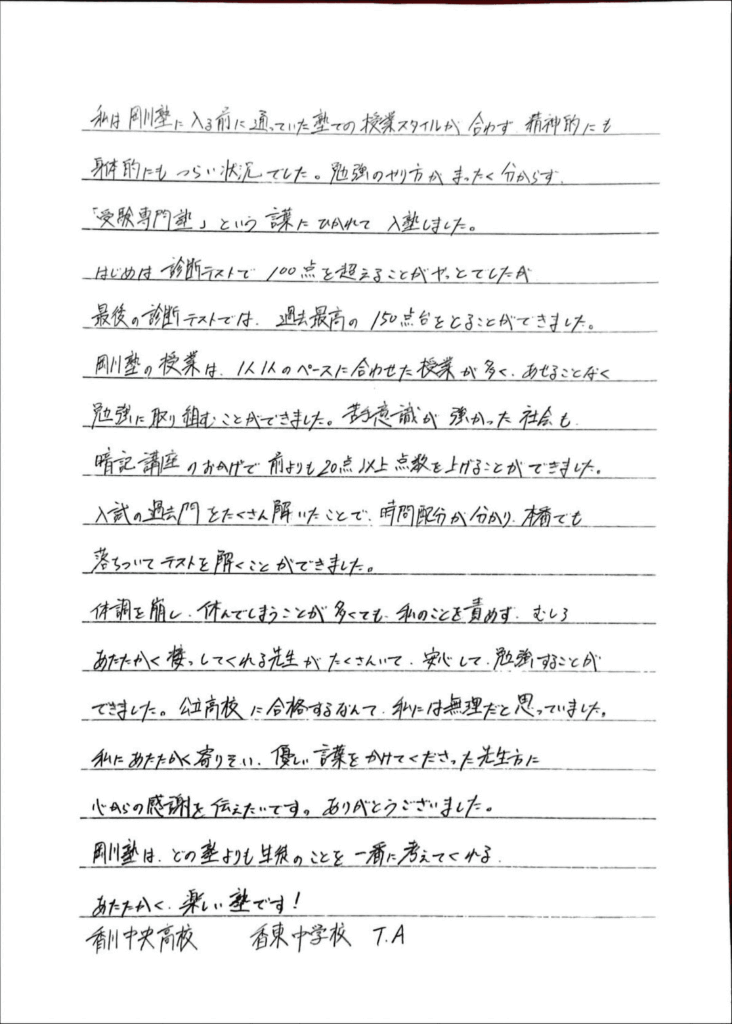 私は剛川塾に入る前に通っていた塾での授業スタイルが合わず 精神的にも
身体的にもつらい状況でした。勉強のやり方がまったく分からず、
「受験専門塾」という言葉にひかれて 入塾しました。
はじめは診断テストで 100点を超えることがやっとでしたが
最後の診断テストでは、過去最高の 150点台をとることができました。
剛川塾の授業は、1人1人のペースに合わせた授業が多く、あせることなく
勉強に取り組むことができました。苦手意識が強かった社会も、
暗記講座のおかげで前よりも20点以上点数を上げることができました。
入試の過去問をたくさん解いたことで、時間配分が分かり、本番でも
落ちついてテストを解くことができました。
体調を崩し、休んでしまうことが多くても、私のことを責めず、むしろ
あたたかく接っしてくれる先生がたくさんいて、安心して、勉強することが
できました。公立高校に合格するなんて、私には無理だと思っていました。
私にあたたかく寄りそい、優しい言葉をかけてくださった先生方に
心からの感謝を伝えたいです。ありがとうございました。
剛川塾は、どの塾よりも生徒のことを一番に考えてくれる、
あたたかく、楽しい塾です！
香川中央高校 香東中学校 T.A